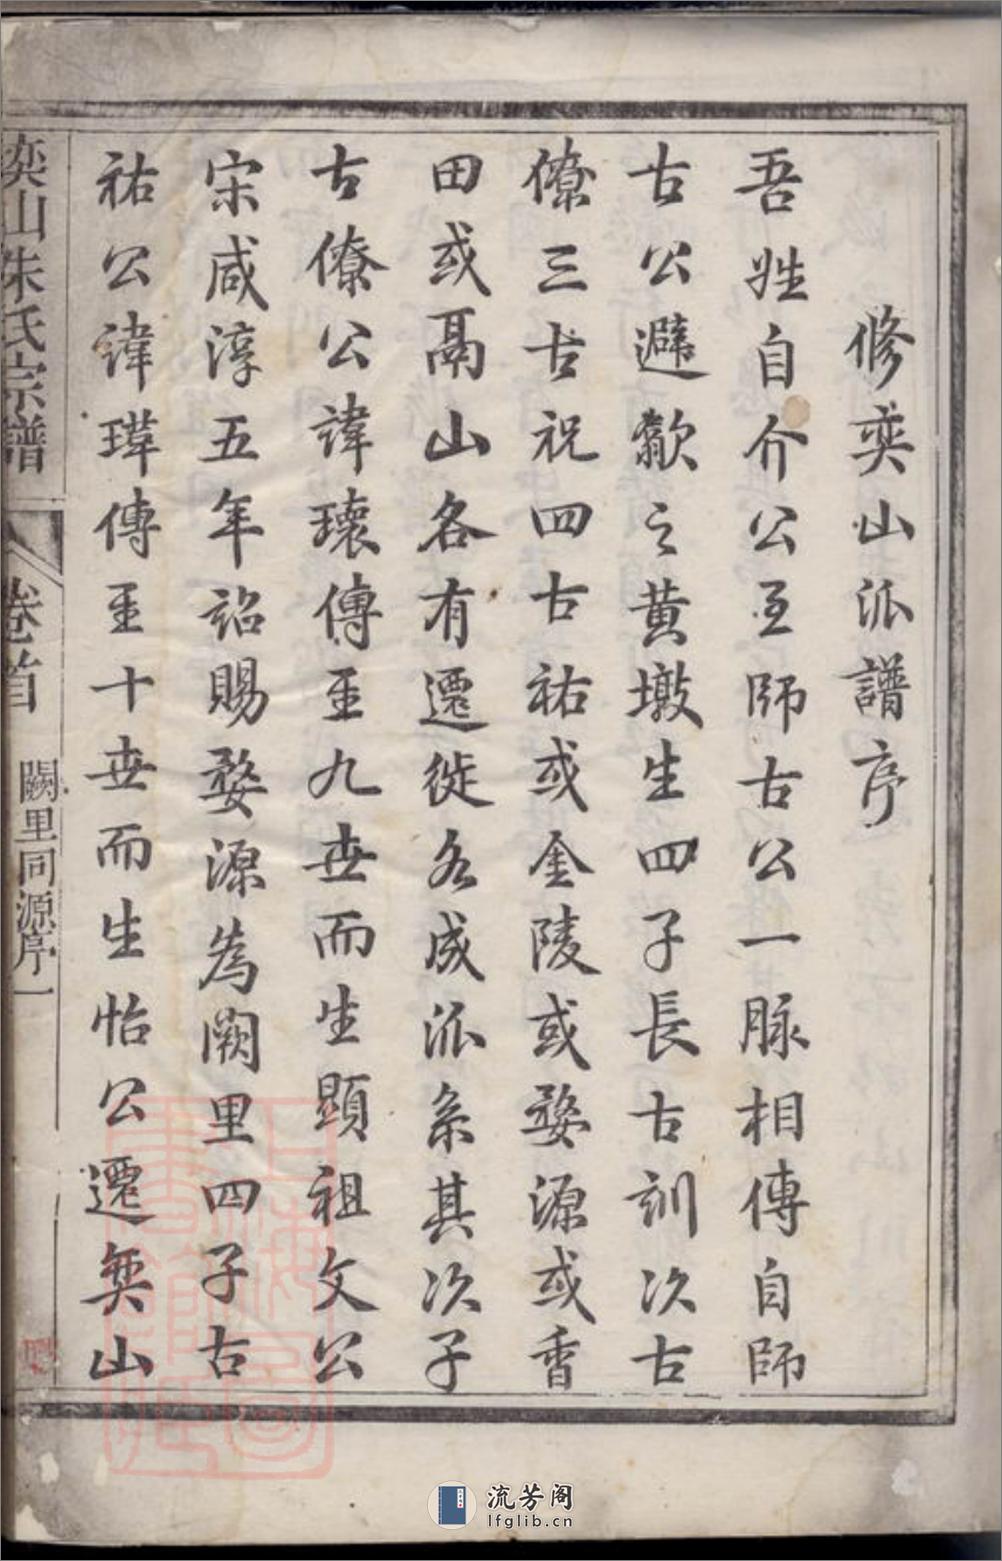 修奕山派譜序
吾姓自介公至師古公一脉相傳自師
古公避歙之黄墩生四子長古訓次古
僚三古祝四古祐或金陵或婺源或香
田或鬲山各有遷徙各成派系其次子
古僚公諱瓌傳至九世而生顯祖文公
宋咸淳五年詔賜婺源為闕里四子古
祐公諱瑋傳至十世而生怡公遷奕山
奕山朱氏宗譜
卷首
闕里同源序一
流芳阁
lfglib.cn